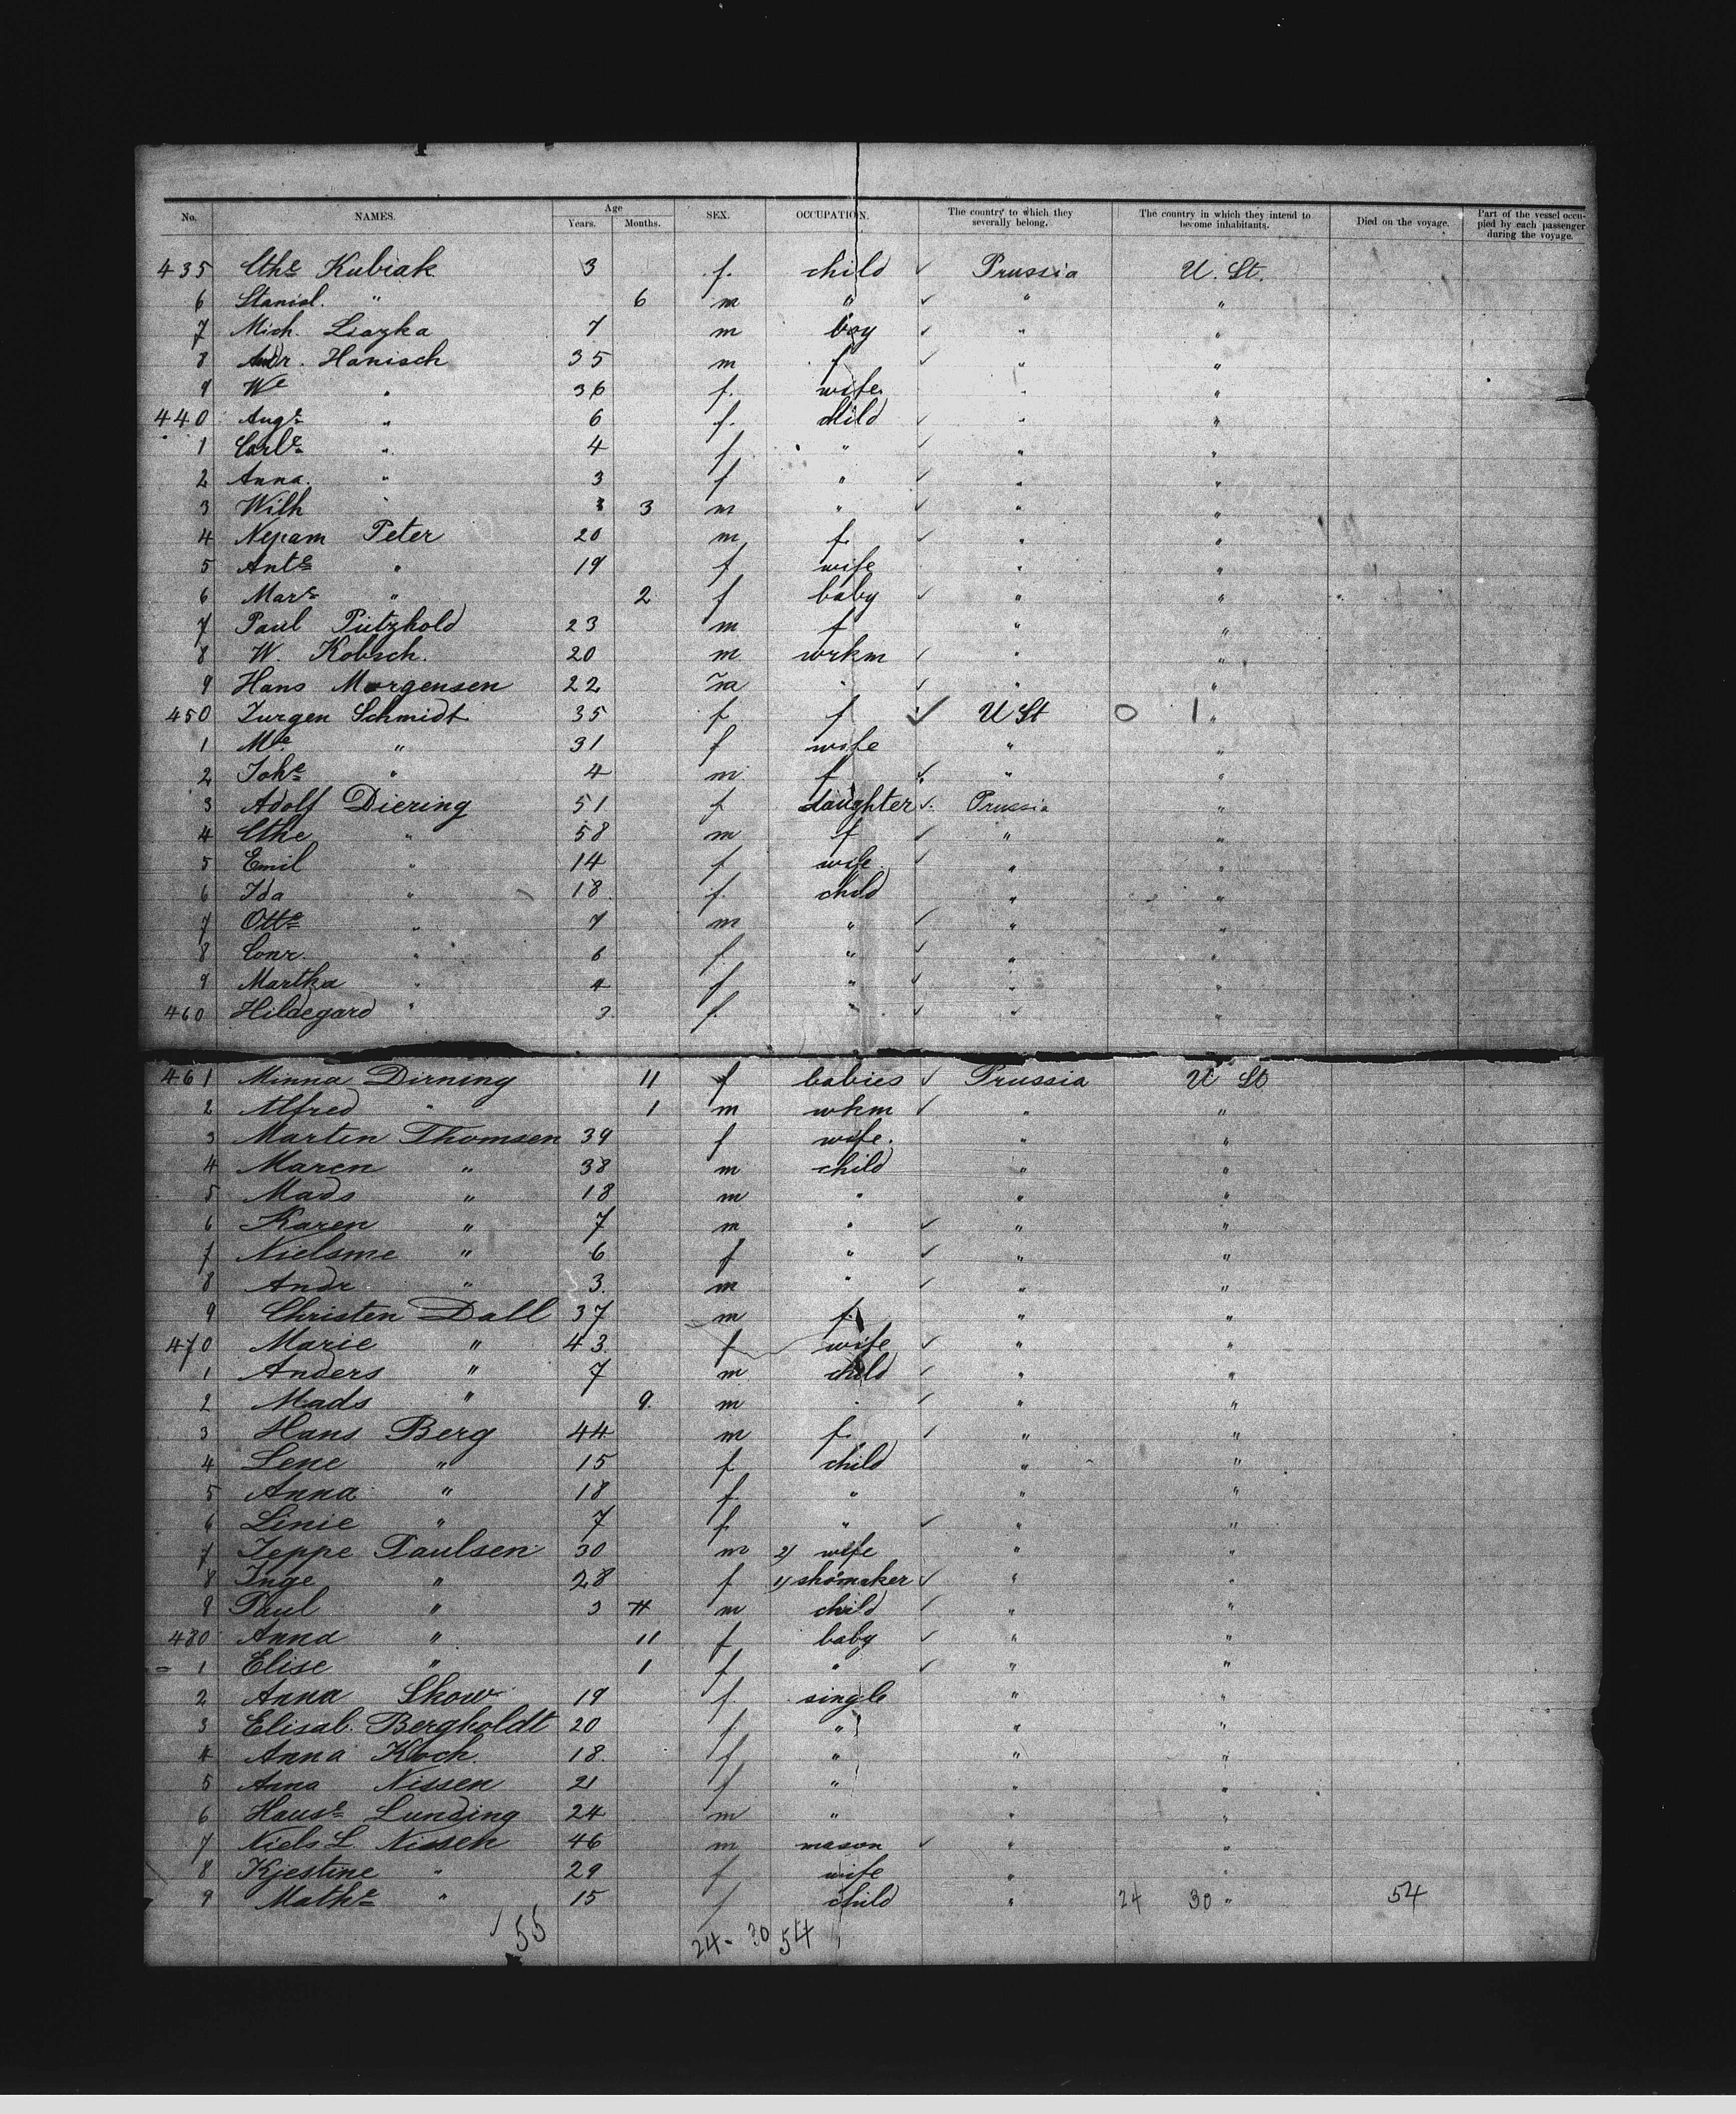 No. NAMES. Age Years. Months. SEX. OCCUPATION. The country to which they severally belong. The country in which they intend to become inhabitants. Died on the voyage. Part of the vessel occupied by each passenger during the voyage.
435 Cthe Kubiak 3 f. child ✓ Prussia U. St.
6 Stanisl. " 6 m " ✓ " "
7 Mich. Liazka 7 m boy ✓ " "
8 Andr. Hanisch 35 m f ✓ " "
9 We " 36 f. wife " "
440 Auge " 6 f. child ✓ " "
1 Carle " 4 f " ✓ " "
2 Anna. " 3 f " ✓ " "
3 Wilh " 3 m " ✓ " "
4 Nepam Peter 20 m f. ✓ " "
5 Ante " 19 f wife " "
6 Mare " 2 f baby ✓ " "
7 Paul Pützhold 23 m f " "
8 W. Kobsch. 20 m wrkm ✓ " "
9 Hans Morgensen 22 m " ✓ " "
450 Jurgen Schmidt 35 f f ✓ U St 0 1 "
1 Me " 31 f wife " "
2 Johe " 4 m f ✓ " "
3 Adolf Diering 51 f daughter ✓ Prussia "
4 Cthe " 58 m f ✓ " "
5 Emil " 14 f wife ✓ " "
6 Ida " 18 f. child " "
7 Otte " 7 m " ✓ " "
8 Conr. " 6 f " ✓ " "
9 Martha " 4 f " ✓ " "
460 Hildegard " 3 f. " ✓ " "
461 Minna Dirning 11 f babies ✓ Prussia U St
2 Alfred " 1 m wkm ✓ " "
3 Martin Thomsen 39 f wife. " "
4 Maren " 38 m child " "
5 Mads " 18 m " " "
6 Karen " 7 m " ✓ " "
7 Nielsme " 6 f " ✓ " "
8 Andr " 3. m " ✓ " "
9 Christen Dall 37 m f. " "
470 Marie " 43. f wife ✓ " "
1 Anders " 7 m child ✓ " "
2 Mads " 9. m " ✓ " "
3 Hans Berg 44 m f. ✓ " "
4 Lene " 15 f child " "
5 Anna " 18 f " " "
6 Linie " 7 f " ✓ " "
7 Jeppe Paulsen 30 m 2) wife " "
8 Inge " 28 f 1) shomaker ✓ " "
9 Paul " 3 m child ✓ " "
480 Anna " 11 f baby ✓ " "
1 Elise " 1 f " ✓ " "
2 Anna Skow 19 f single " "
3 Elisab. Bergholdt 20 f " " "
4 Anna Koch 18. f " " "
5 Anna Nissen 21 f " " "
6 Hanse Lunding 24 m " " "
7 Niels L. Nissen 46 m mason ✓ " "
8 Kjestine " 29 f wife " "
9 Mathe " 15 f child " 24 30 " 54
✓ 55 24 - 30 54